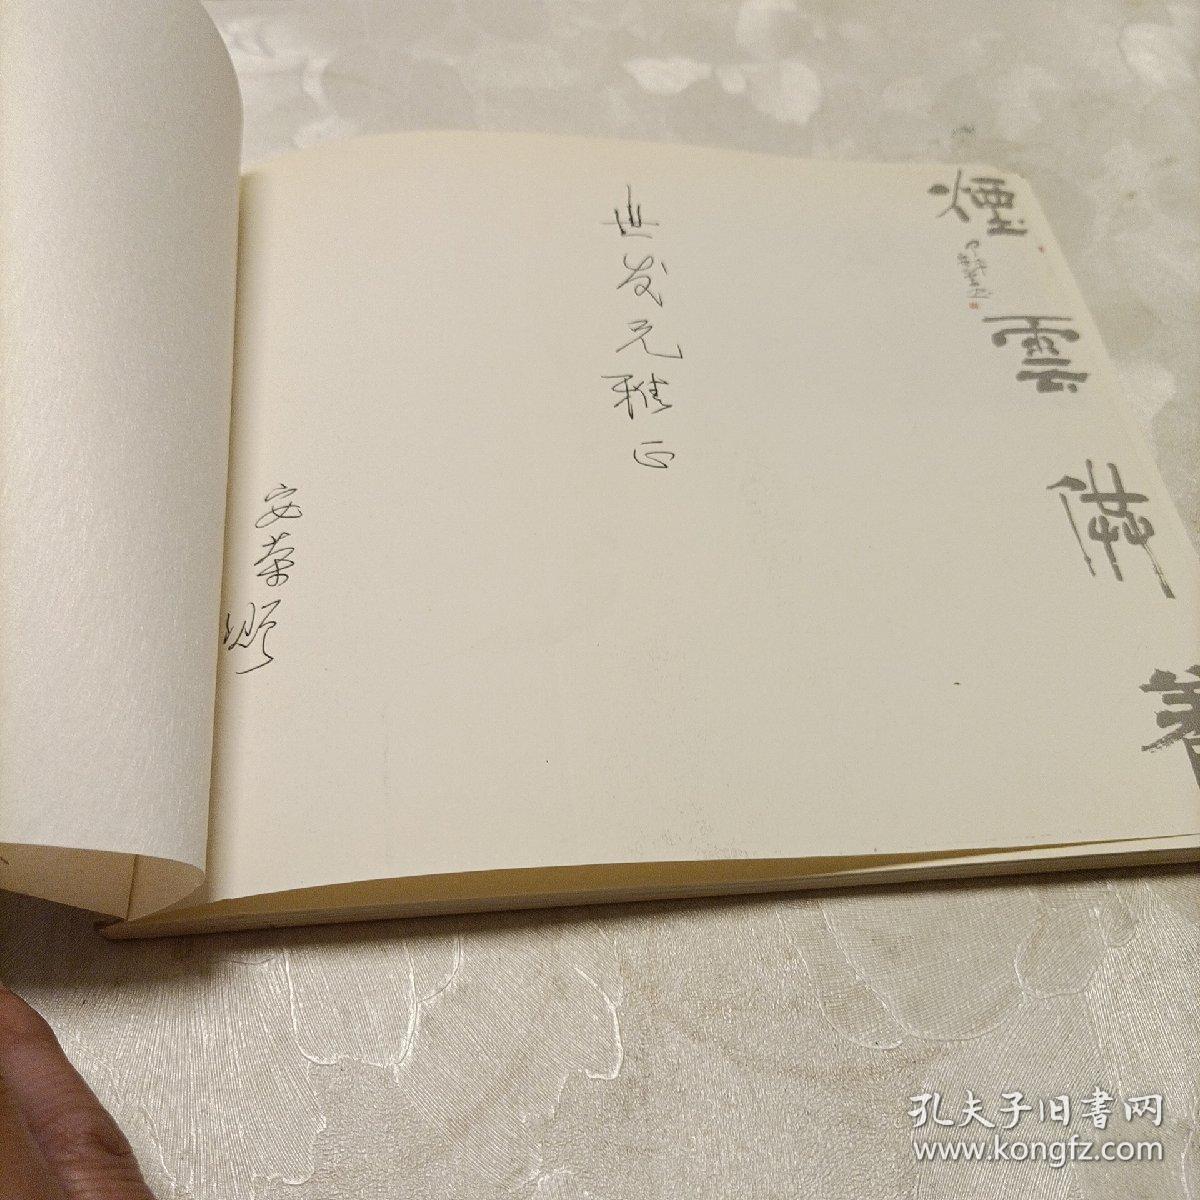 煙雲供養
世发兄雅正
安荣卿
孔夫子旧書网
www.kongfz.com